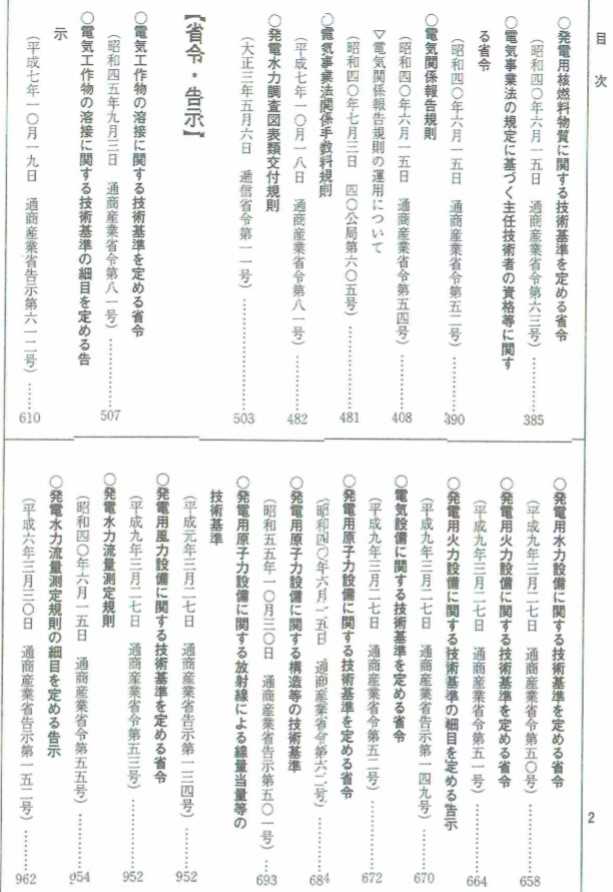 目次
2
○発電用核燃料物質に関する技術基準を定める省令
(昭和四〇年六月一五日 通商産業省令第六三号)………385
○電気事業法の規定に基づく主任技術者の資格等に関す
る省令
(昭和四〇年六月一五日 通商産業省令第五二号)………390
○電気関係報告規則
(昭和四〇年六月一五日 通商産業省令第五四号)………408
▽電気関係報告規則の運用について
(昭和四〇年七月三日 四〇公局第六〇五号)………481
○電気事業法関係手数料規則
(平成七年一〇月一八日 通商産業省令第八一号)………482
○発電水力調査図表類交付規則
(大正三年五月六日 逓信省令第一一号)………503
【省令・告示】
○電気工作物の溶接に関する技術基準を定める省令
(昭和四五年九月三日 通商産業省令第八一号)………507
○電気工作物の溶接に関する技術基準の細目を定める告
示
(平成七年一〇月一九日 通商産業省告示第六一二号)………610
○発電用水力設備に関する技術基準を定める省令
(平成九年三月二七日 通商産業省令第五〇号)………658
○発電用火力設備に関する技術基準を定める省令
(平成九年三月二七日 通商産業省令第五一号)………664
○発電用火力設備に関する技術基準の細目を定める告示
(平成九年三月二七日 通商産業省告示第一四九号)………670
○電気設備に関する技術基準を定める省令
(平成九年三月二七日 通商産業省令第五二号)………672
○発電用原子力設備に関する技術基準を定める省令
(昭和四〇年六月一五日 通商産業省令第六二号)………684
○発電用原子力設備に関する構造等の技術基準
(昭和五五年一〇月三〇日 通商産業省告示第五〇一号)………693
○発電用原子力設備に関する放射線による線量当量等の
技術基準
(平成元年三月二七日 通商産業省告示第一三四号)………952
○発電用風力設備に関する技術基準を定める省令
(平成九年三月二七日 通商産業省令第五三号)………952
○発電水力流量測定規則
(昭和四〇年六月一五日 通商産業省令第五五号)………954
○発電水力流量測定規則の細目を定める告示
(平成六年三月三〇日 通商産業省告示第一五二号)………962